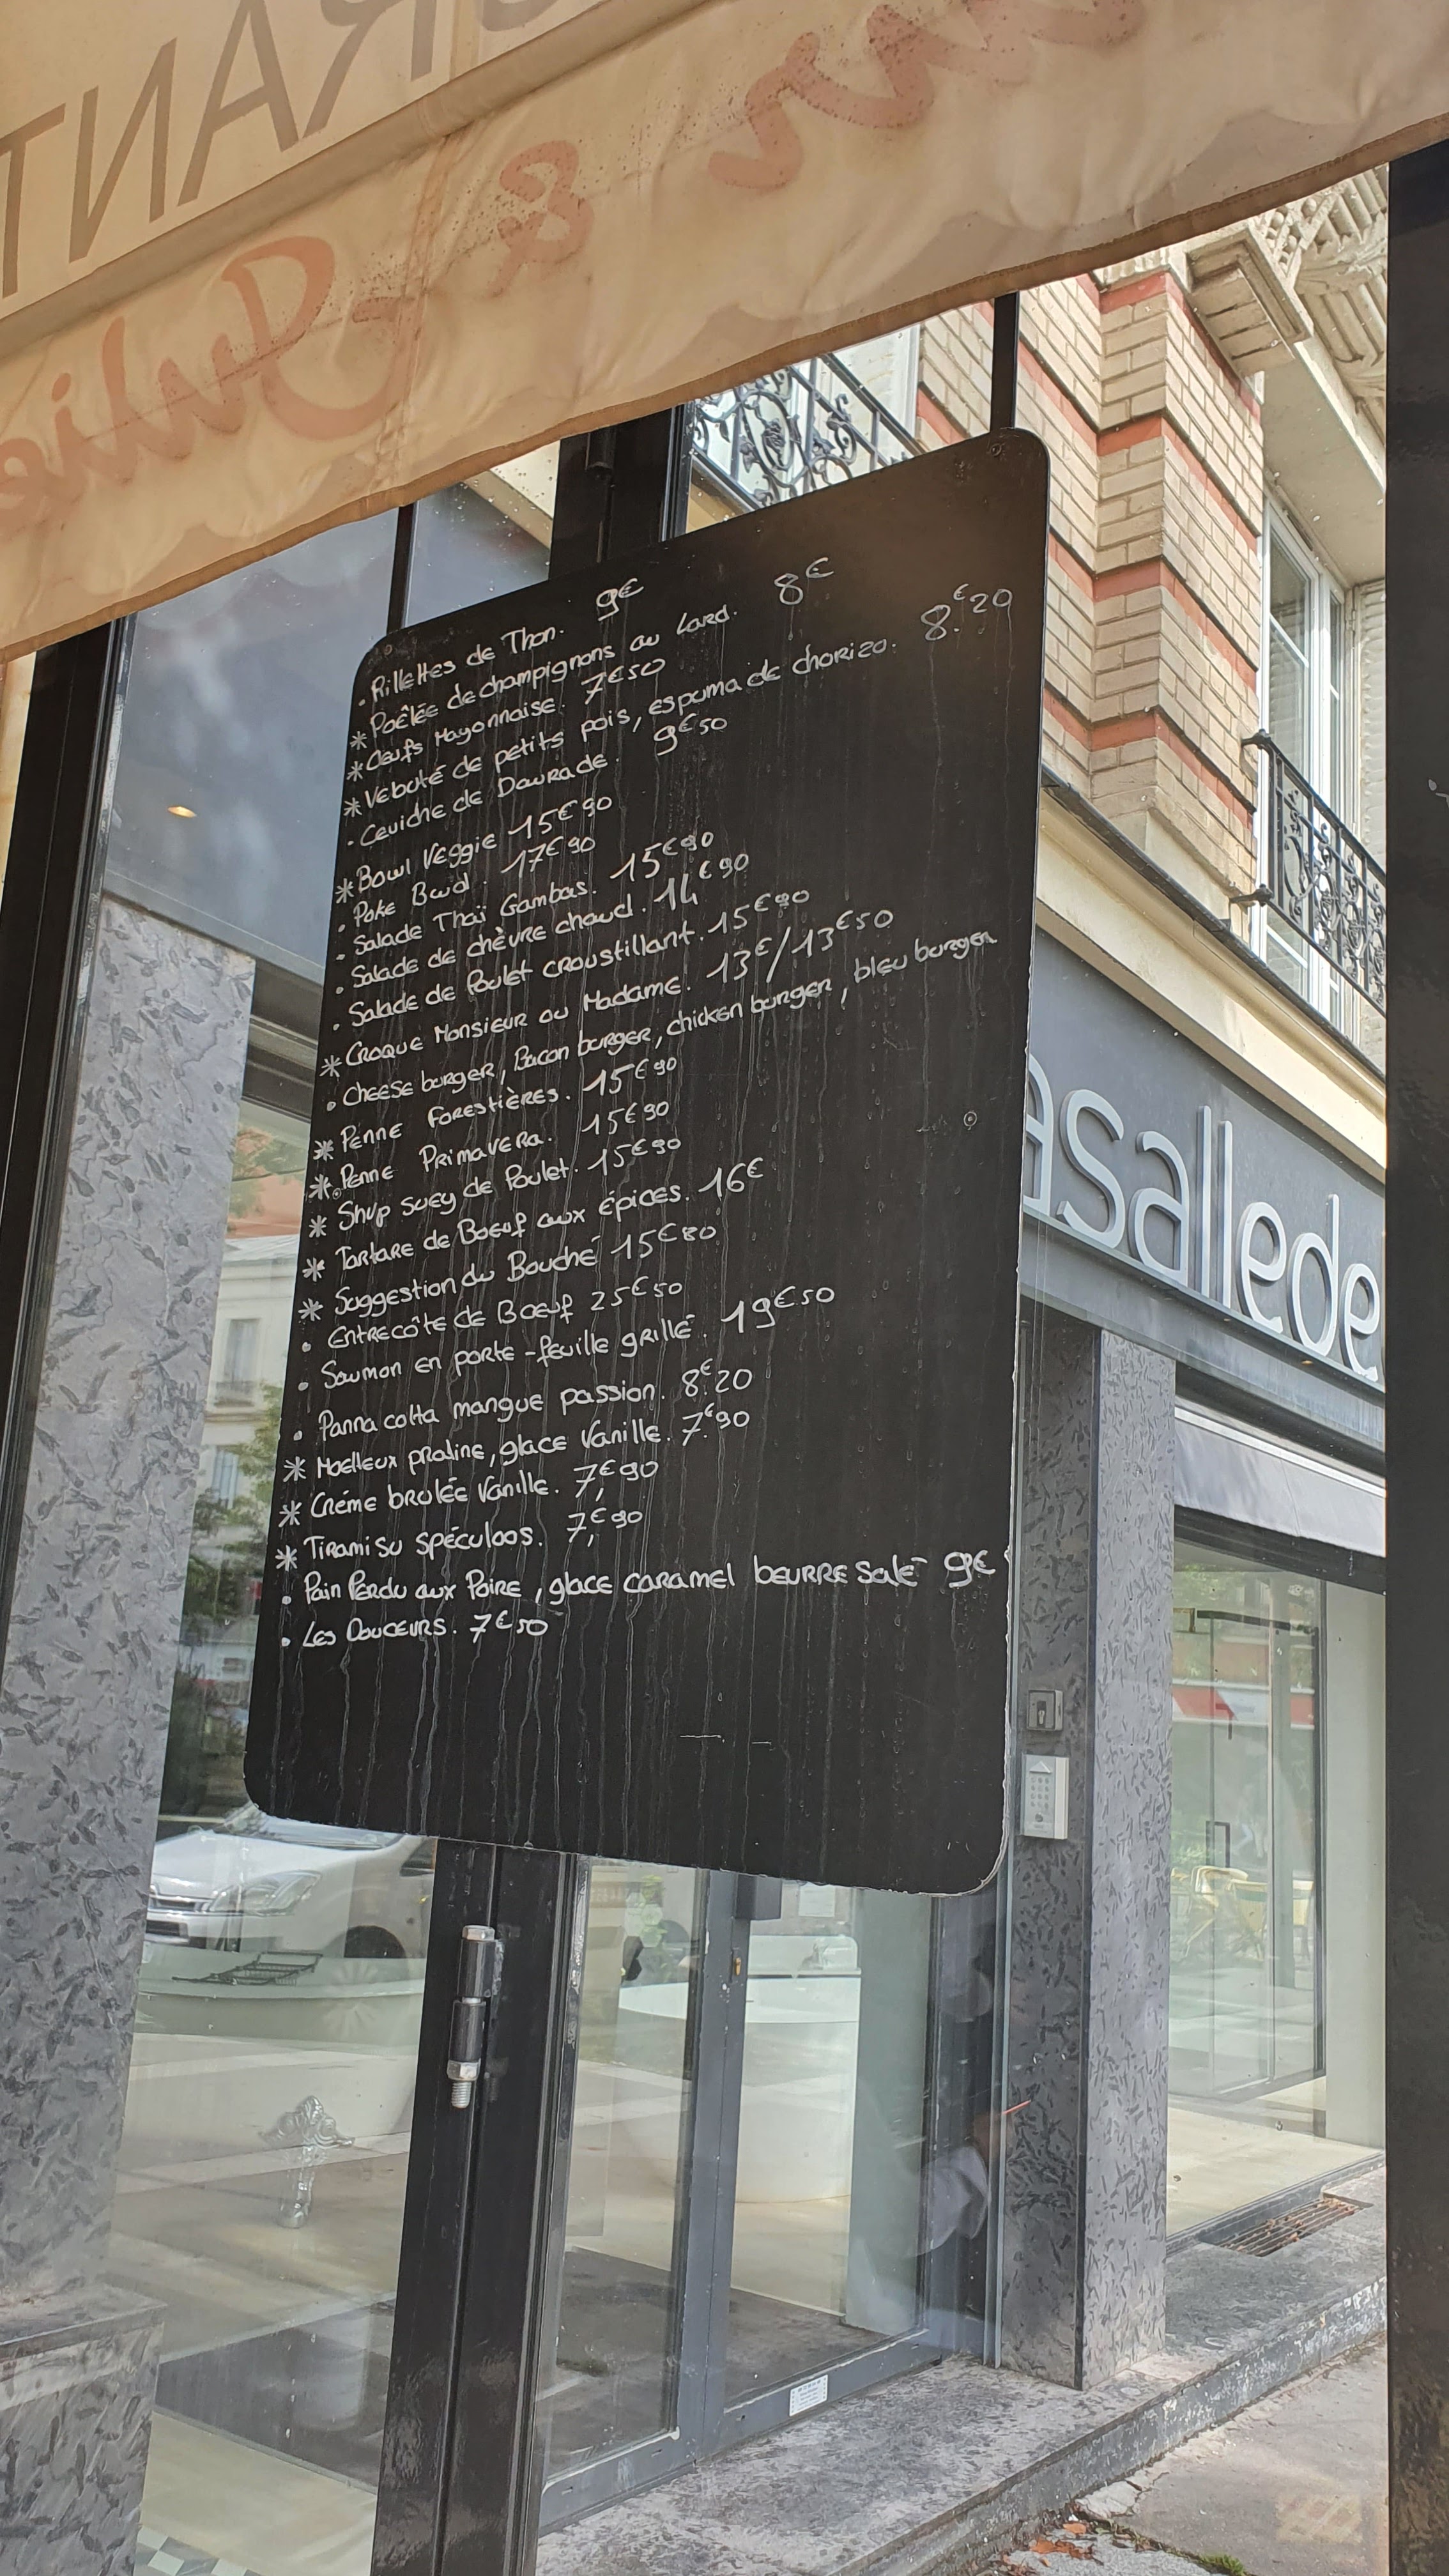 RANT
& Juli
. Rillettes de Thon. 9€
* Poêlée de champignons au lard. 8€
* Oeufs Mayonnaise. 7€50
* Velouté de petits pois, espuma de chorizo. 8.€20
. Ceviche de Daurade. 9€50
* Bowl Veggie 15€90
. Poke Bowl. 17€90
. Salade Thaï Gambas. 15€90
. Salade de chèvre chaud. 14€90
. Salade de Poulet croustillant. 15€90
* Croque Monsieur ou Madame. 13€/13€50
. Cheese burger, Bacon burger, chicken burger, bleu burger
* Penne Forestières. 15€90
* Penne Primavera. 15€90
* Shup suey de Poulet. 15€90
* Tartare de Boeuf aux épices. 16€
* Suggestion du Bouché 15€80
. Entrecôte de Bœuf 25€50
. Saumon en porte-feuille grillé. 19€50
. Panna cotta mangue passion. 8.€20
* Moelleux praline, glace Vanille. 7.€90
* Créme brulée Vanille. 7,€90
* Tiramisu Spéculoos. 7,€90
. Pain Perdu aux Poire, glace caramel beurre salé 9€
. Les Douceurs. 7€50
asallede